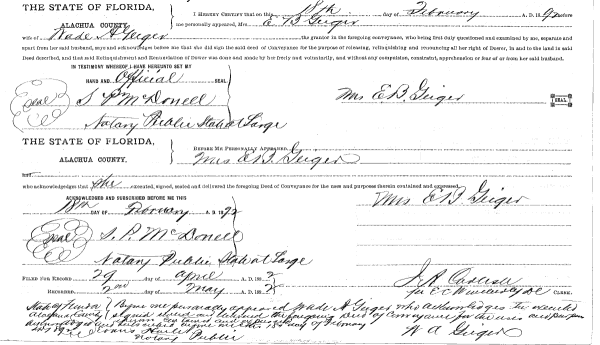 THE STATE OF FLORIDA,
ALACHUA COUNTY.
I HEREBY CERTIFY that on this 18th day of February A. D. 1892 before
me personally appeared, Mrs E B Geiger
wife of Wade A Geiger the grantor in the foregoing conveyance, who being first duly questioned and examined by me, separate and
apart from her said husband, says and acknowledges before me that she did sign the said deed of Conveyance for the purpose of releasing, relinquishing and renouncing all her right of Dower, in and to the land in said
Deed described, and that said Relinquishment and Renunciation of Dower was done and made by her freely and voluntarily, and without any compulsion, constraint, apprehension or fear of or from her said husband.
IN TESTIMONY WHEREOF, I HAVE HEREUNTO SET MY
HAND AND Official SEAL
Seal S. P McDonell
Mrs E B. Geiger SEAL
Notary Public State at Large
THE STATE OF FLORIDA,
ALACHUA COUNTY.
BEFORE ME PERSONALLY APPEARED
Mrs E B Geiger
and
who acknowledges that she executed, signed, sealed and delivered the foregoing Deed of Conveyance for the uses and purposes therein contained and expressed
ACKNOWLEDGED AND SUBSCRIBED BEFORE ME THIS
18th DAY OF February A. D. 1892
Mrs E B Geiger
Seal S. P. McDonell
Notary Public State at Large
FILED FOR RECORD 29 day of April A. D. 1892
RECORDED 2nd day of May A. D. 1892
CLERK.
State of Florida Before me personally appeared Wade A Geiger who acknowledges the
Alachua County signed sealed and delivered the foregoing Deed of conveyance for the uses and purposes
this 18th day of February
W A Geiger
Notary Public